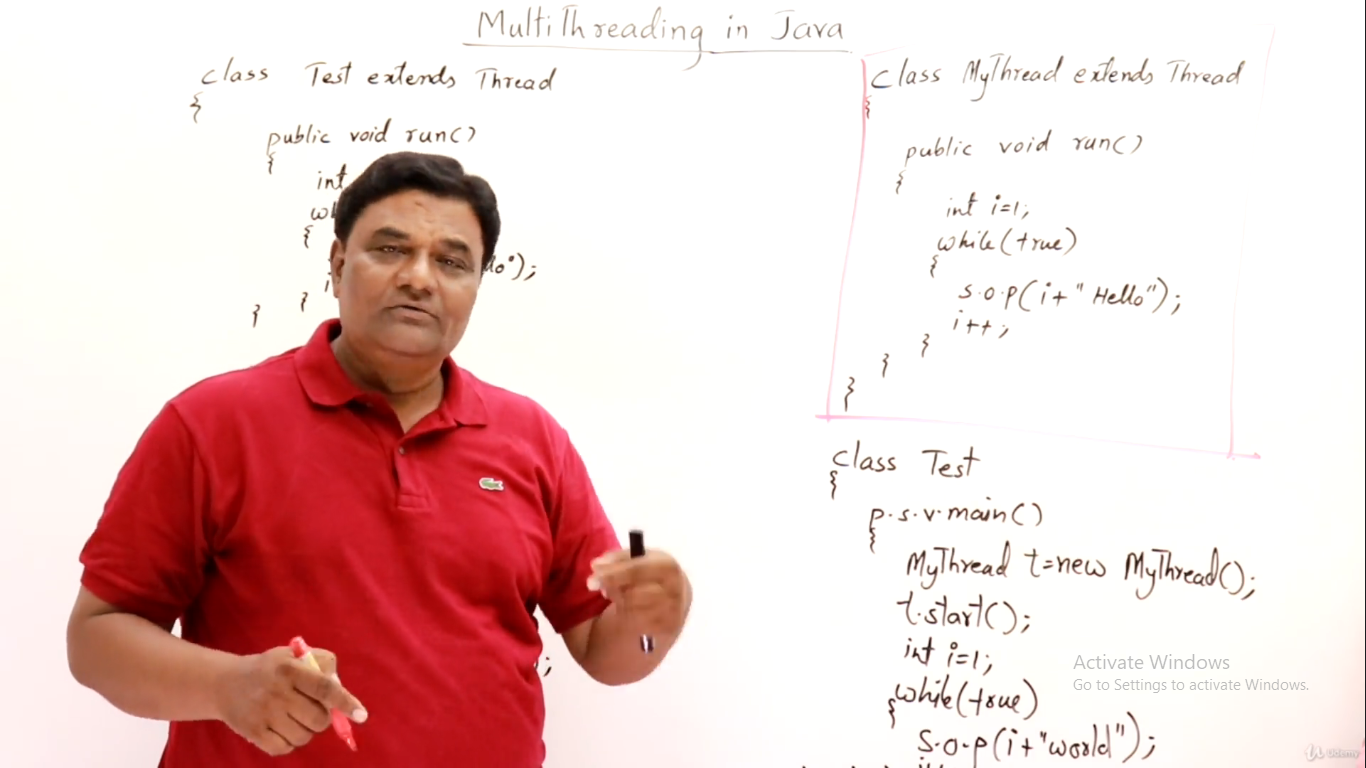 MultiThreading in Java
class Test extends Thread
{
public void run()
{
int
{
");
i
}
}
;
class MyThread extends Thread
{
public void run()
{
int i=1;
while(true)
{
s.o.p(i+" Hello");
i++;
}
}
}
class Test
{
p.s.v.main()
{
MyThread t=new MyThread();
t.start();
int i=1;
while(true)
{
s.o.p(i+"world");
Activate Windows
Go to Settings to activate Windows.
Udemy